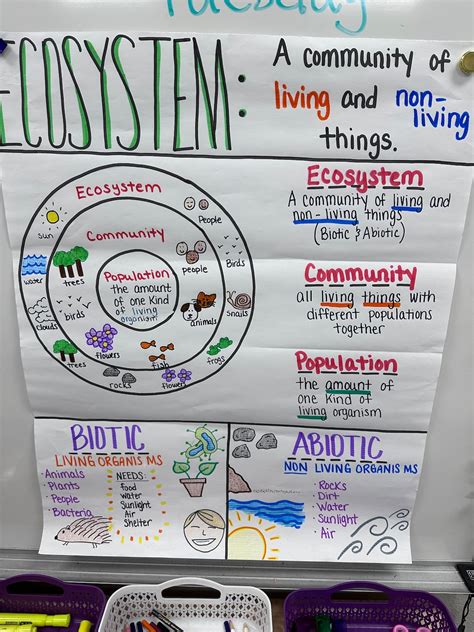 Tuesday
ECOSYSTEM:
A community of
living and non-living
things.
Ecosystem
sun
People
water
trees
Birds
clouds
snails
trees
frogs
rocks
flowers
Community
people
birds
animals
flowers
fish
Population
the amount
of one kind
of living
organism
Ecosystem
A community of living and
non-living things
(Biotic & Abiotic)
Community
all living things with
different populations
together
Population
the amount of
one kind of
living organism
BIOTIC
LIVING ORGANISMS
• Animals
• Plants
• People
• Bacteria
NEEDS:
food
water
Sunlight
Air
Shelter
ABIOTIC
NON LIVING ORGANISMS
• Rocks
• Dirt
• Water
• Sunlight
• Air